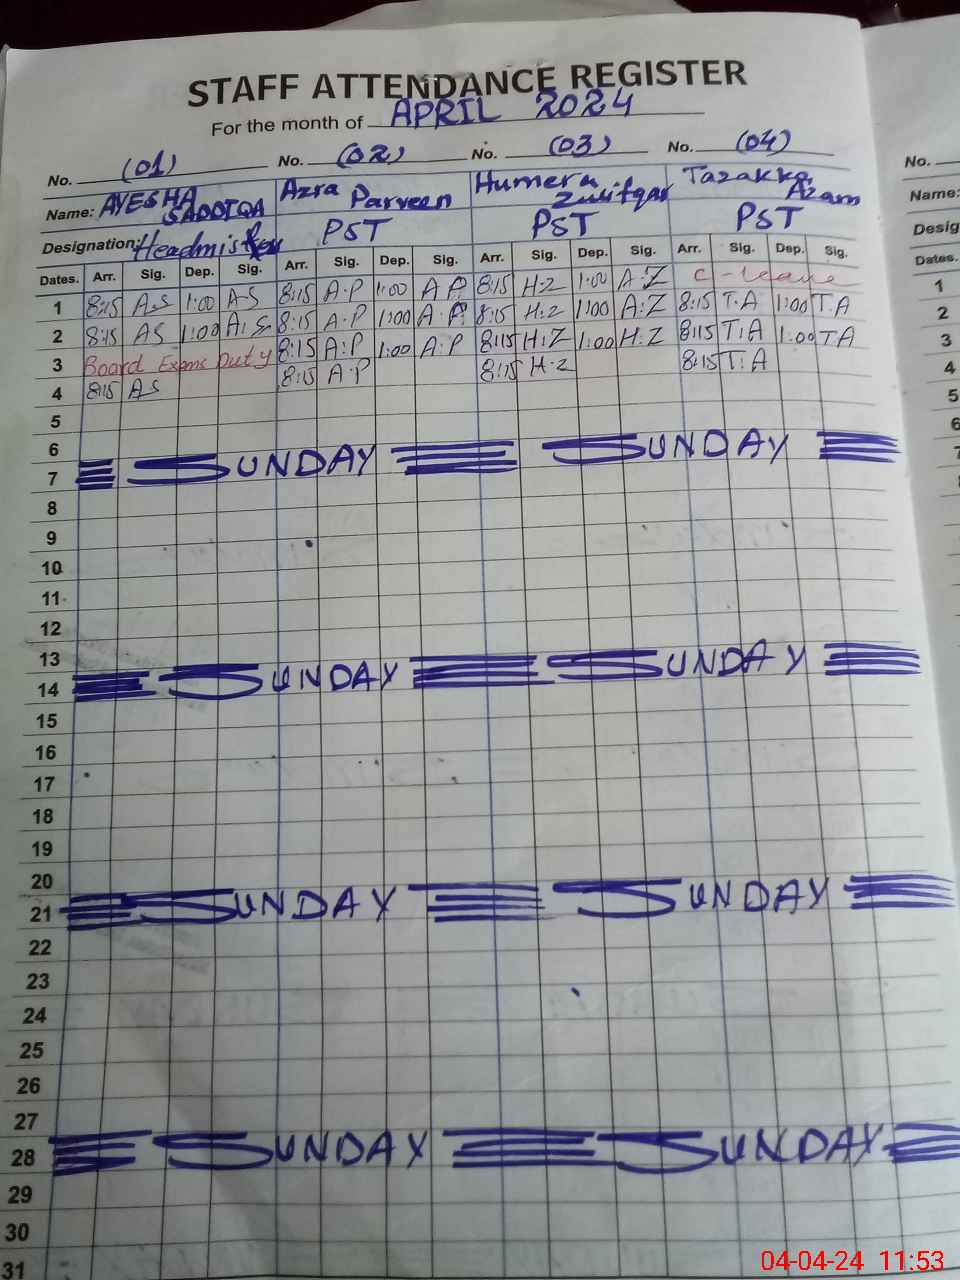 STAFF ATTENDANCE REGISTER
For the month of APRIL 2024
No. (01) No. (02) No. (03) No. (04) No.
Name: AYESHA SADDIQA Azra Parveen Humera Zulifqar Tazakka Azam Name:
Designation: Headmistress PST PST PST Desig
Dates. Arr. Sig. Dep. Sig. Arr. Sig. Dep. Sig. Arr. Sig. Dep. Sig. Arr. Sig. Dep. Sig. Dates.
1 8:15 A.S 1:00 A-S 8:15 A.P 1:00 A P 8:15 H:Z 1:00 A:Z C-leave 1
2 8:15 AS 1:00 A:S 8:15 A.P 1:00 A.P 8:15 H:Z 1:00 A:Z 8:15 T.A 1:00 T.A 2
3 Board Exams Duty 8:15 A:P 1:00 A:P 8:15 H:Z 1:00 H:Z 8:15 T:A 1:00 TA 3
4 8:15 AS 8:15 A.P 8:15 H-Z 8:15 T:A 4
5 5
6 6
7 SUNDAY SUNDAY 7
8
9
10
11
12
13
14 SUNDAY SUNDAY
15
16
17
18
19
20
21 SUNDAY SUNDAY
22
23
24
25
26
27
28 SUNDAY SUNDAY
29
30
31
04-04-24 11:53